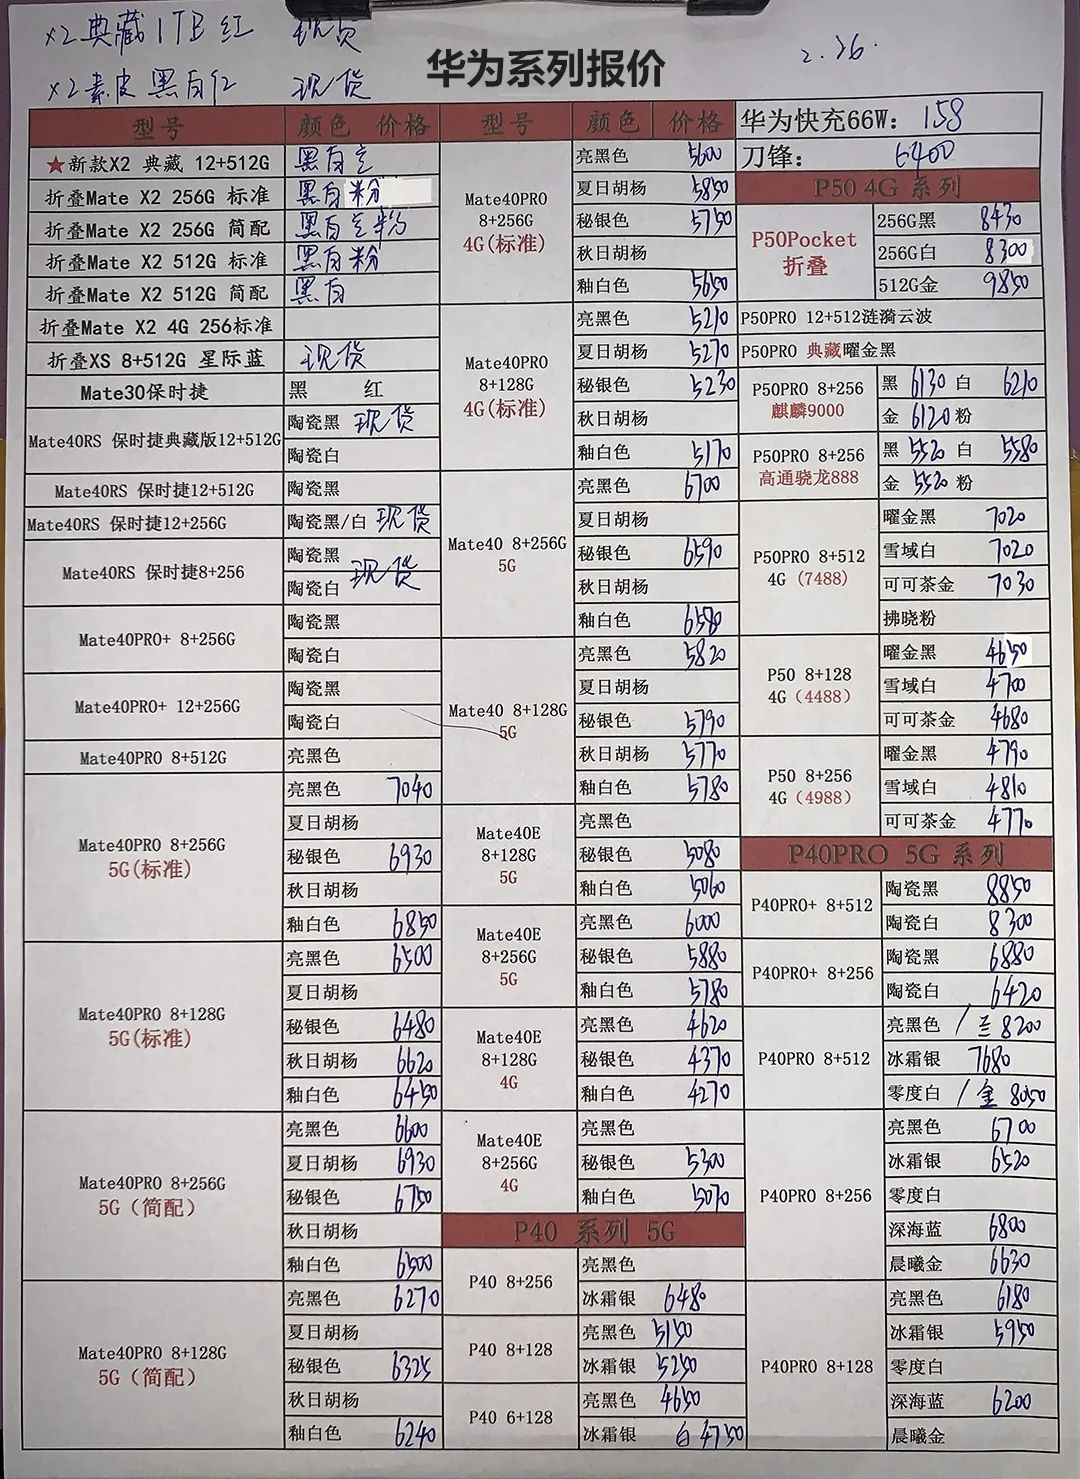 x2典藏1TB红 现货
华为系列报价
2.26.
x2素皮 黑白红 现货
型号 颜色 价格
★新款X2 典藏 12+512G 黑白
折叠Mate X2 256G 标准 黑白粉
折叠Mate X2 256G 简配 黑白 粉
折叠Mate X2 512G 标准 黑白粉
折叠Mate X2 512G 简配 黑白
折叠Mate X2 4G 256标准
折叠XS 8+512G 星际蓝 现货
Mate30保时捷 黑 红
Mate40RS 保时捷典藏版12+512G
陶瓷黑 现货
陶瓷白
Mate40RS 保时捷12+512G 陶瓷黑
Mate40RS 保时捷12+256G 陶瓷黑/白 现货
Mate40RS 保时捷8+256
陶瓷黑 现货
陶瓷白
Mate40PRO+ 8+256G
陶瓷黑
陶瓷白
Mate40PRO+ 12+256G
陶瓷黑
陶瓷白
Mate40PRO 8+512G 亮黑色
Mate40PRO 8+256G
5G(标准)
亮黑色 7040
夏日胡杨
秘银色 6930
秋日胡杨
釉白色 6850
Mate40PRO 8+128G
5G(标准)
亮黑色 6500
夏日胡杨
秘银色 6480
秋日胡杨 6620
釉白色 6450
Mate40PRO 8+256G
5G（简配）
亮黑色 6600
夏日胡杨 6930
秘银色 6750
秋日胡杨
釉白色 6500
Mate40PRO 8+128G
5G（简配）
亮黑色 6270
夏日胡杨
秘银色 6325
秋日胡杨
釉白色 6240
型号 颜色 价格
Mate40PRO
8+256G
4G(标准)
亮黑色 5600
夏日胡杨 5850
秘银色 5750
秋日胡杨
釉白色 5650
Mate40PRO
8+128G
4G(标准)
亮黑色 5210
夏日胡杨 5270
秘银色 5230
秋日胡杨
釉白色 5170
Mate40 8+256G
5G
亮黑色 6700
夏日胡杨
秘银色 6590
秋日胡杨
釉白色 6580
Mate40 8+128G
5G
亮黑色 5820
夏日胡杨
秘银色 5790
秋日胡杨 5770
釉白色 5780
Mate40E
8+128G
5G
亮黑色
秘银色 5080
釉白色 5060
Mate40E
8+256G
5G
亮黑色 6000
秘银色 5880
釉白色 5780
Mate40E
8+128G
4G
亮黑色 4620
秘银色 4370
釉白色 4270
Mate40E
8+256G
4G
亮黑色
秘银色 5300
釉白色 5070
P40 系列 5G
P40 8+256
亮黑色
冰霜银 6480
P40 8+128
亮黑色 5150
冰霜银 5250
P40 6+128
亮黑色 4650
冰霜银 白 4750
华为快充66W: 158
刀锋: 6400
P50 4G 系列
P50Pocket
折叠
256G黑 8430
256G白 8300
512G金 9850
P50PRO 12+512涟漪云波
P50PRO 典藏曜金黑
P50PRO 8+256
麒麟9000
黑 6130 白 6210
金 6120 粉
P50PRO 8+256
高通骁龙888
黑 5520 白 5580
金 5520 粉
P50PRO 8+512
4G（7488）
曜金黑 7020
雪域白 7020
可可茶金 7030
拂晓粉
P50 8+128
4G（4488）
曜金黑 4650
雪域白 4700
可可茶金 4680
P50 8+256
4G（4988）
曜金黑 4790
雪域白 4810
可可茶金 4770
P40PRO 5G 系列
P40PRO+ 8+512
陶瓷黑 8850
陶瓷白 8300
P40PRO+ 8+256
陶瓷黑 6880
陶瓷白 6420
P40PRO 8+512
亮黑色 / 兰 8200
冰霜银 7680
零度白 / 金 8050
P40PRO 8+256
亮黑色 6700
冰霜银 6520
零度白
深海蓝 6800
晨曦金 6630
P40PRO 8+128
亮黑色 6180
冰霜银 5950
零度白
深海蓝 6200
晨曦金